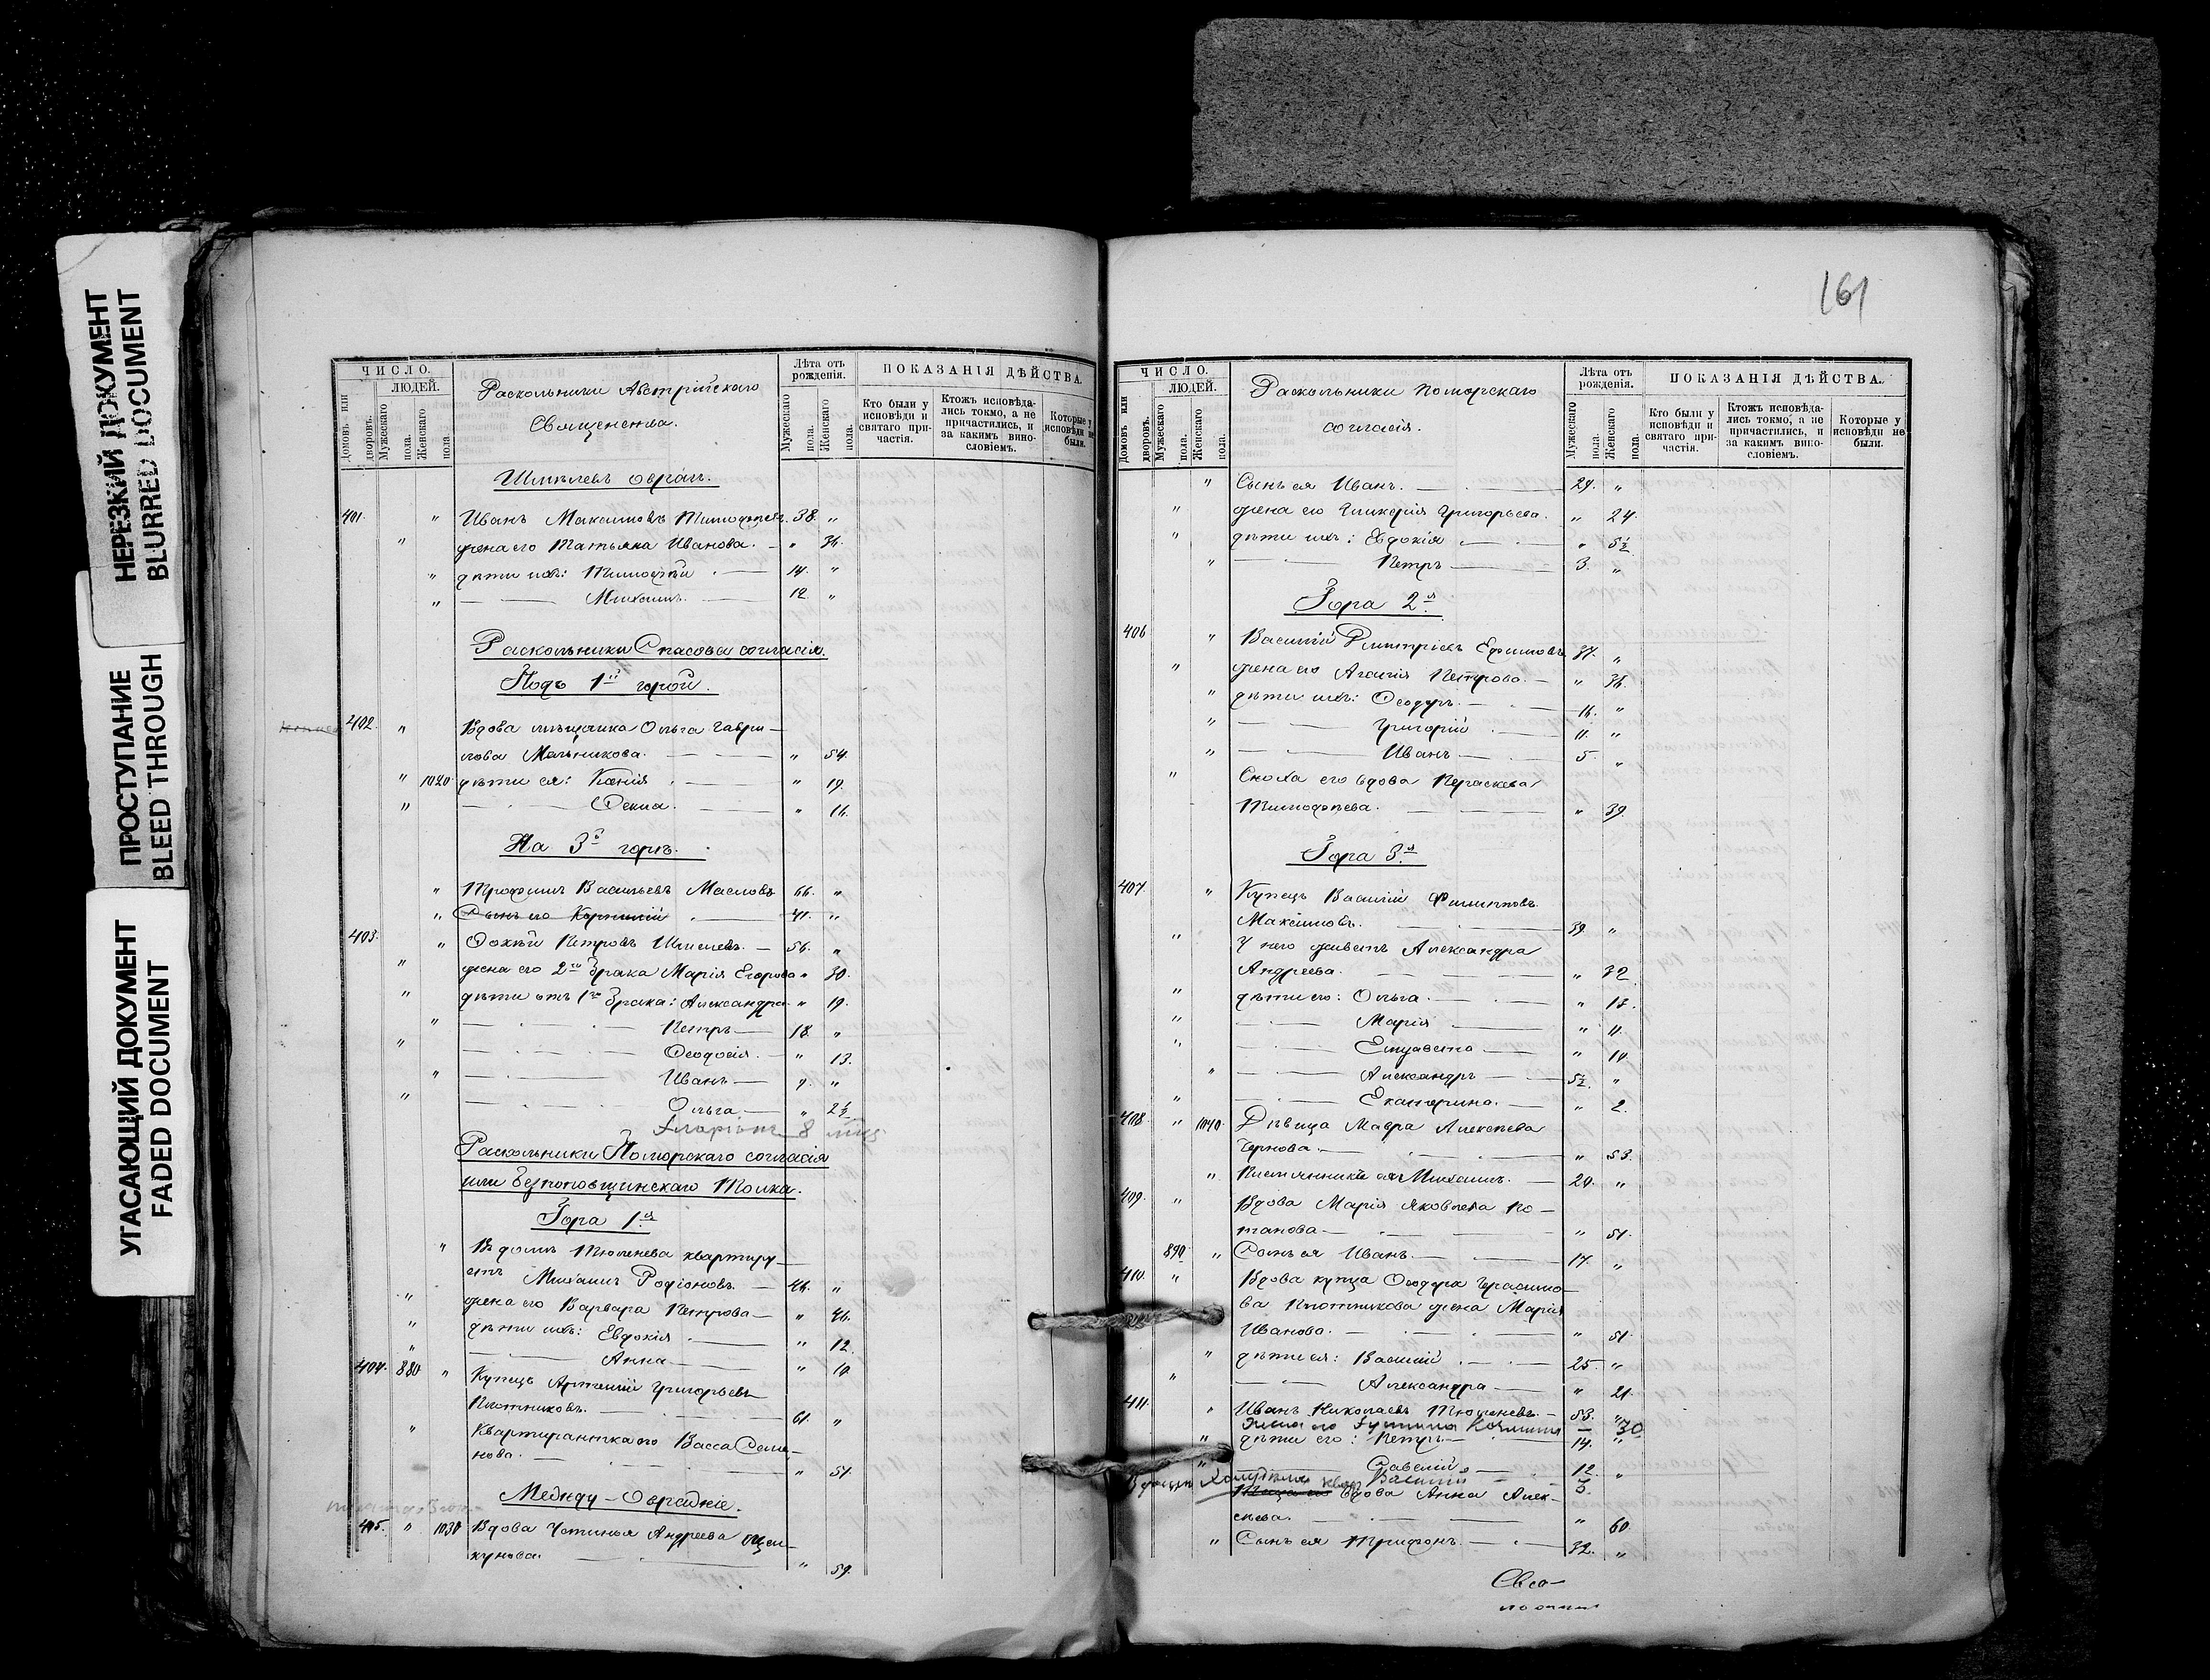 НЕРЕЗКИЙ ДОКУМЕНТ
BLURRED DOCUMENT
ПРОСТУПАНИЕ
BLEED THROUGH
УГАСАЮЩИЙ ДОКУМЕНТ
FADED DOCUMENT
ЧИСЛО.
Домовъ или дворовъ.
ЛЮДЕЙ.
Мужескаго пола.
Женскаго пола.
Раскольники Австрійскаго
Священства.
Лѣта отъ рожденія.
Мужескаго пола.
Женскаго пола.
ПОКАЗАНІЯ ДѢЙСТВА.
Кто были у исповѣди и святаго причастія.
Ктожъ исповѣдались токмо, а не причастились, и за какимъ винословіемъ.
Которые у исповѣди не были.
Шмелевъ оврагъ.
401. " Иванъ Максимовъ Тимофеевъ. 38. "
" жена его Татьяна Иванова. — " 36.
" дѣти ихъ: Тимофѣй — 14. "
" — Михаилъ. — 12. "
Раскольники Спасова согласія.
Подъ 1й горой.
402. " Вдова мѣщанка Ольга Гаври-
лова Мельникова. — " 54.
" 1020 дѣти ея: Ксенія — " 19.
" — Фекла. — " 16.
На 3й горѣ.
" Трофимъ Васильевъ Масловъ 66. "
" Сынъ его — 41. "
403. " Фокѣй Петровъ Шмелевъ. — 56. "
" жена его 2го брака Марія Егорова " 30.
" дѣти отъ 1го брака: Александра " 19.
" — Петръ — 18. "
" — Ѳеодосія. — " 13.
" — Иванъ — 9. "
" — Ольга — " 2½
8 мѣс
Раскольники Поморскаго согласія
или безпоповщинскаго толка.
Гора 1я
" Въ домѣ Тюленева квартиру-
етъ Михаилъ Родіоновъ. — 46. "
" жена его Варвара Петрова — " 46.
" дѣти ихъ: Евдокія — " 12.
" — Анна — " 10.
404. 880. " Купецъ Артемій Григорьевъ
Плотниковъ. — 61. "
" Квартирантка его Васса Семе-
нова. — " 51.
Между-Овражніе.
405. " 1030 Вдова Устинья Андреева
кунова. — " 59.
161
ЧИСЛО.
Домовъ или дворовъ.
ЛЮДЕЙ.
Мужескаго пола.
Женскаго пола.
Раскольники Поморскаго
согласія.
Лѣта отъ рожденія.
Мужескаго пола.
Женскаго пола.
ПОКАЗАНІЯ ДѢЙСТВА.
Кто были у исповѣди и святаго причастія.
Ктожъ исповѣдались токмо, а не причастились, и за какимъ винословіемъ.
Которые у исповѣди не были.
" Сынъ ея Иванъ. — 29. "
" жена его Гликерія Григорьева. " 24.
" дѣти ихъ: Евдокія — " 5½
" — Петръ — 3. "
Гора 2я
406 " Василій Димитріевъ Ефимовъ 37. "
" жена его Агафія Петрова. — " 36.
" дѣти ихъ: Ѳеодоръ. — 16. "
" — Григорій — 11. "
" — Иванъ — 5. "
" Сноха его вдова Параскева
Тимофеева. — " 39.
Гора 3я
407. " Купецъ Василій Филипповъ
Максимовъ. — 39. "
" У него живетъ Александра
Андреева. — " 32.
" дѣти его: Ольга — " 17.
" — Марія — " 11.
" — Елизавета — " 10.
" — Александръ — 5½. "
" — Екатерина. — " 2.
408. " 1040. Дѣвица Мавра Алексѣева
Чернова. — " 53.
" Племянникъ ея Михаилъ. — 20. "
409. " Вдова Марія Яковлева По-
тапова — " 51.
890. " Сынъ ея Иванъ. — 17. "
410. " Вдова купца Ѳеодора Герасимо-
ва Плотникова жена Марія
Иванова. — " 51.
" дѣти ея: Василій — 25. "
" — Александра — " 21.
411. " Иванъ Николаевъ Тюленевъ. — 53. "
30
" дѣти его: Петръ — 14. "
" — Савелій — 12. "
Василій — 3.
вдова Анна Алек-
сѣева. — " 60.
" Сынъ ея Трифонъ. — 32. "